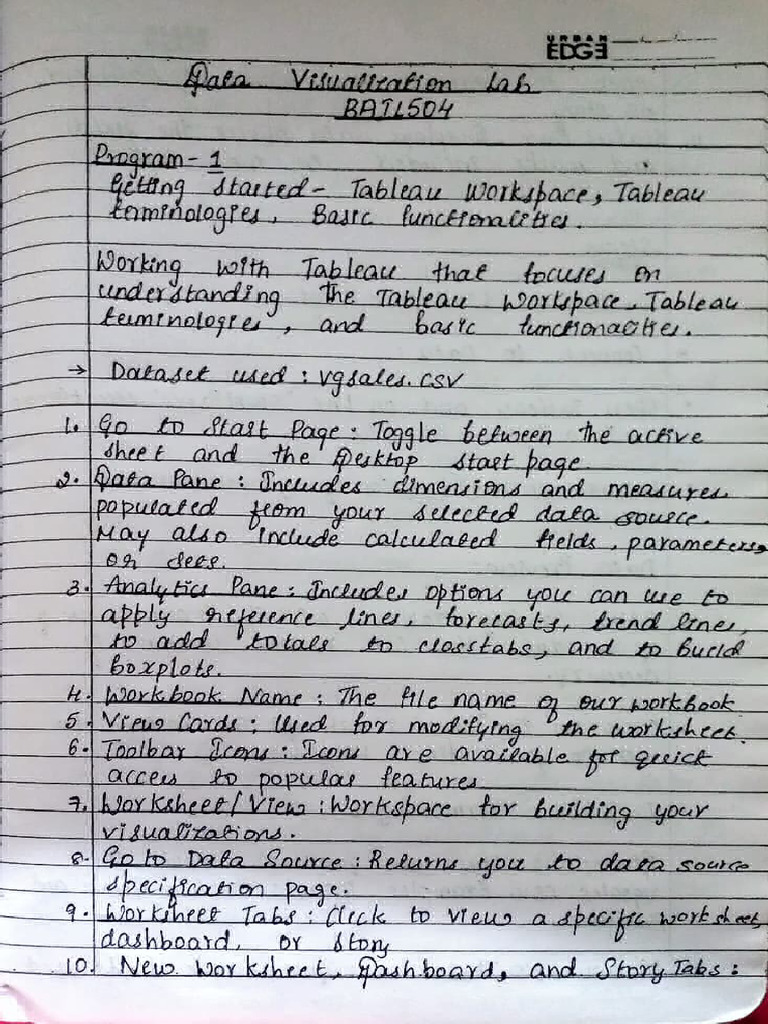 URBAN
EDGE
Data Visualization Lab
BAIL504
Program - 1
Getting started - Tableau Workspace, Tableau
terminologies, Basic functionalities.
Working with Tableau that focuses on
understanding the Tableau Workspace, Tableau
terminologies, and basic functionalities.
→ Dataset used : vgsales.csv
1. Go to Start Page : Toggle between the active
sheet and the Desktop start page.
2. Data Pane : Includes dimensions and measures
populated from your selected data source.
May also include calculated fields, parameters,
or sets.
3. Analytics Pane : Includes options you can use to
apply reference lines, forecasts, trend lines,
to add totals to crosstabs, and to build
boxplots.
4. Workbook Name : The file name of our workbook
5. View Cards : Used for modifying the worksheet.
6. Toolbar Icons : Icons are available for quick
access to popular features
7. Worksheet/View : Workspace for building your
visualizations.
8. Go to Data Source : Returns you to data source
specification page.
9. Worksheet Tabs : Click to view a specific worksheet,
dashboard, or story
10. New Worksheet, Dashboard, and Story Tabs :